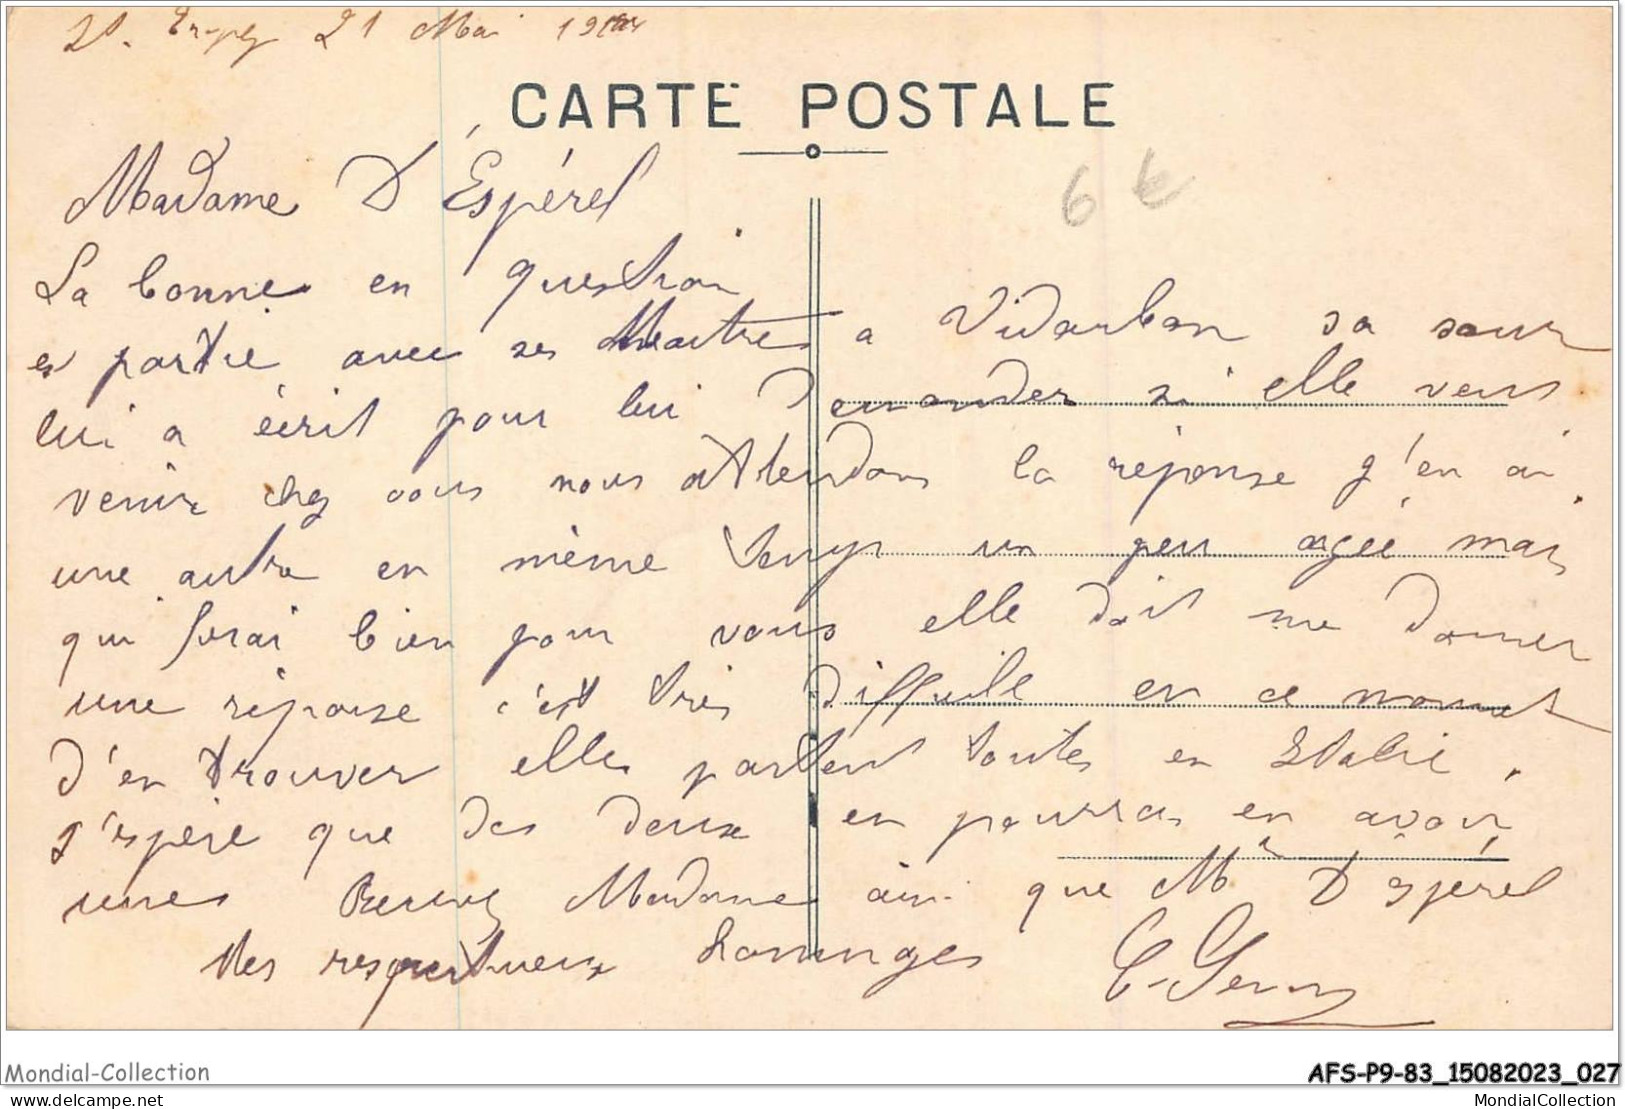 St. Tropez 21 Mai
CARTE POSTALE
6 €
Madame D'Espérel
La bonne en question
es partie avec ses Maitres a Vidauban sa sœur
lui a écrit pour lui demander si elle veut
venir chez vous nous attendons la réponse j'en ai
une autre en même temps un peu agée mais
qui ferai bien pour vous elle doit me donner
une réponse c'est très difficile en ce moment
d'en trouver elles partent toutes en Italie.
J'espère que des deux en pourras en avoir
unes Recevez Madame ainsi que Mr D'Espérel
Mes respectueux homages
Mondial-Collection
AFS-P9-83_15082023_027
delcampe.net
MondialCollection